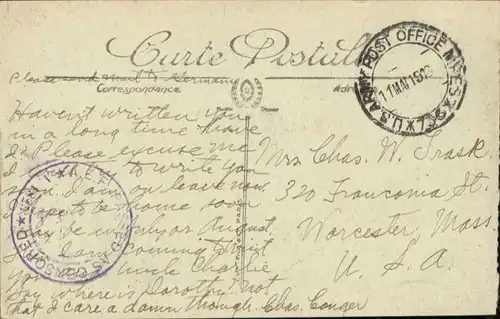 Carte Postale
Please send mail to Germany
Correspondance
U.S. ARMY POST OFFICE M.P.E.S.
11 MAY 1919
Haven't written you
in a long time have
I. Please excuse me
to write you
soon. I am on leave now
I expect to be home soon
may be in July or August
I am coming to visit
you and uncle Charlie
Say where is Dorothy? not
that I care a damn though. Chas. Conger
Mrs. Chas. W. Trask
320 Franconia St.
Worcester, Mass.
U. S. A.
A.E.F.
CENSORED